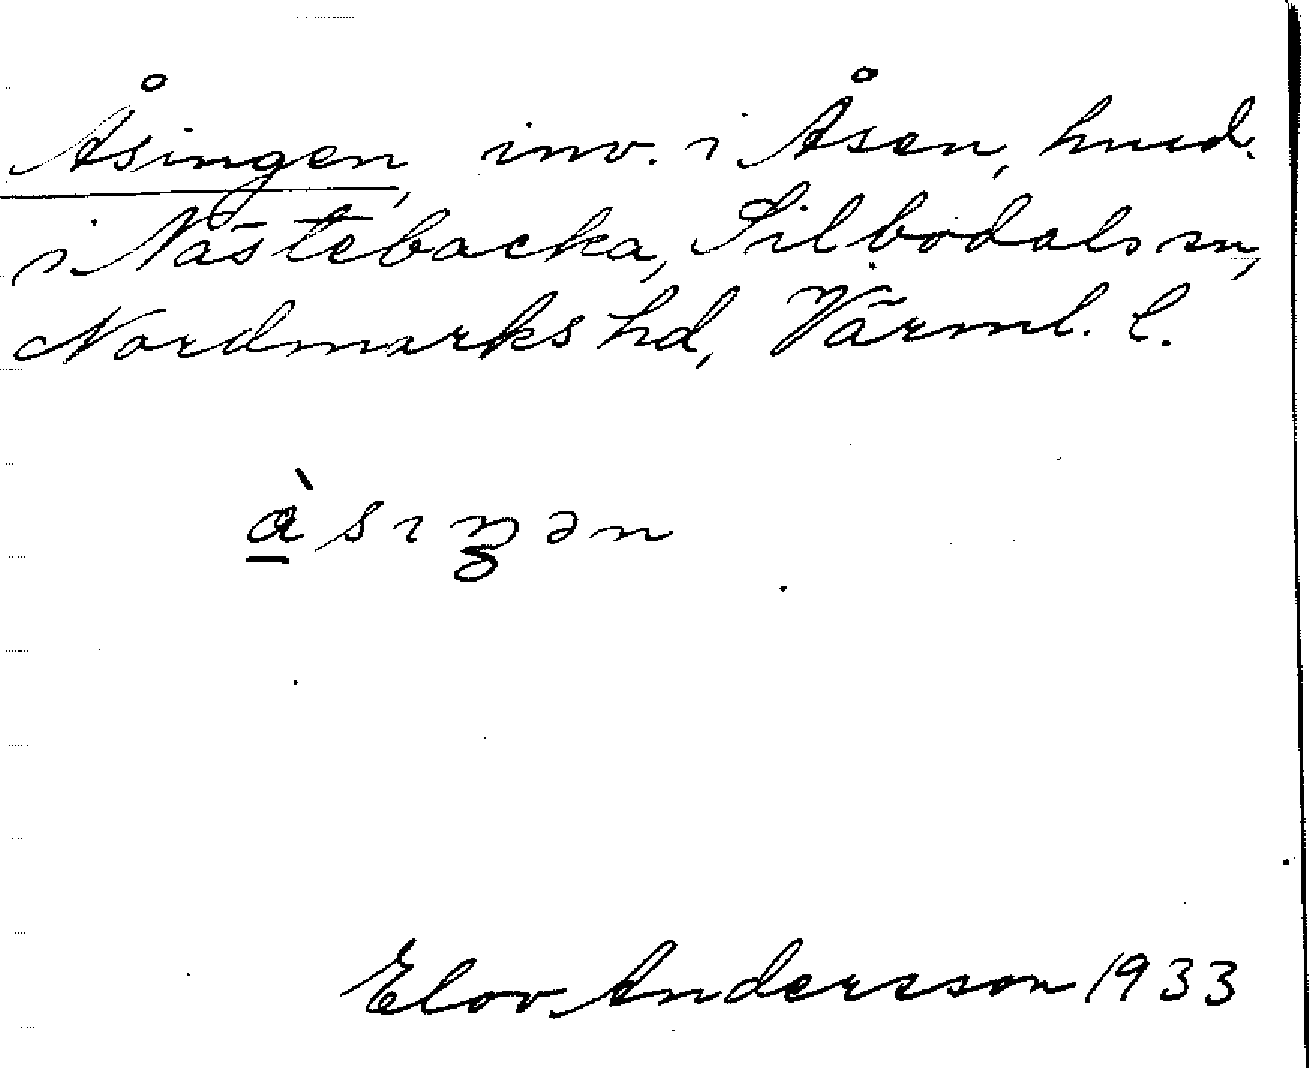 Åsingen, inv. i Åsen, hmd.
i Nästebacka, Silbodals sn,
Nordmarks hd, Värml. l.
Elov Andersson 1933